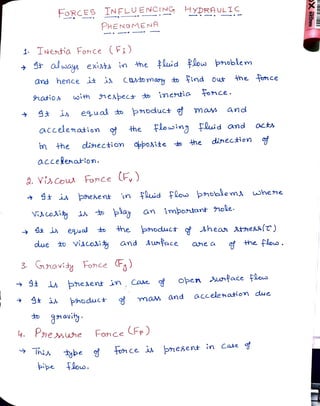 FORCES INFLUENCING HYDRAULIC
PHENOMENA
1. Inertia Force (Fi)
→ It always exists in the fluid flow problem
and hence it is customary to find out the force
ratios with respect to inertia force.
→ It is equal to product of mass and
acceleration of the flowing fluid and acts
in the direction opposite to the direction of
acceleration.
2. Viscous Force (Fv)
→ It is present in fluid flow problems where
viscosity is to play an important role.
→ It is equal to the product of shear stress(τ)
due to viscosity and surface area of the flow.
3. Gravity Force (Fg)
→ It is present in case of open surface flow
→ It is product of mass and acceleration due
to gravity.
4. Pressure Force (Fp)
→ This type of force is present in case of
pipe flow.